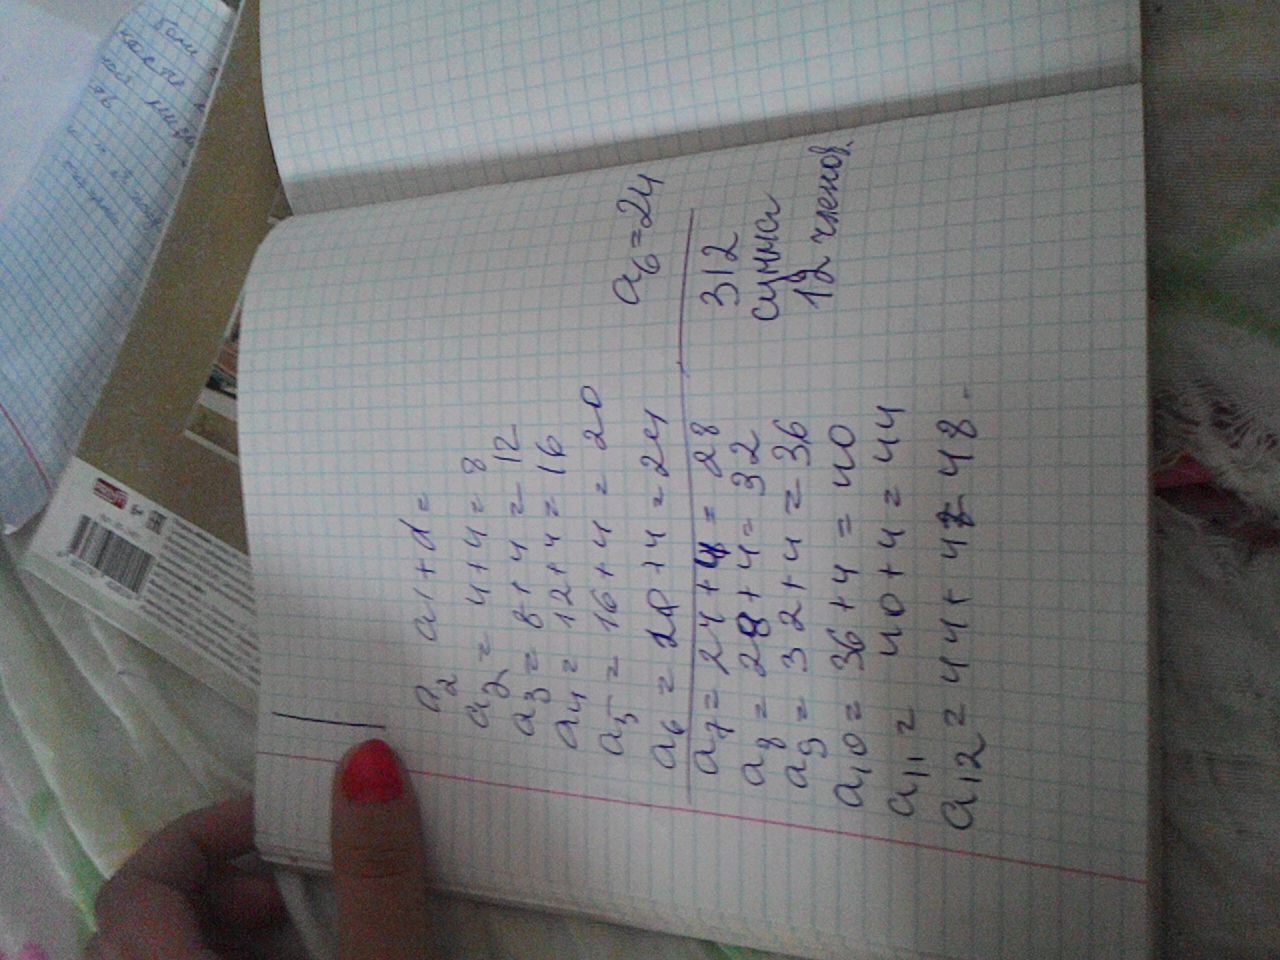 a2 a1+d=
a2 = 4+4= 8
a3 = 8+4 = 12
a4 = 12+4= 16
a5 = 16+4 = 20
a6 = 20+4 = 24
a6=24
a7= 24+4 = 28
a8 = 28+4= 32
a9 = 32+4 = 36
a10= 36+4 = 40
a11 = 40+4= 44
a12= 44+4= 48
312
сумма
12 членов.